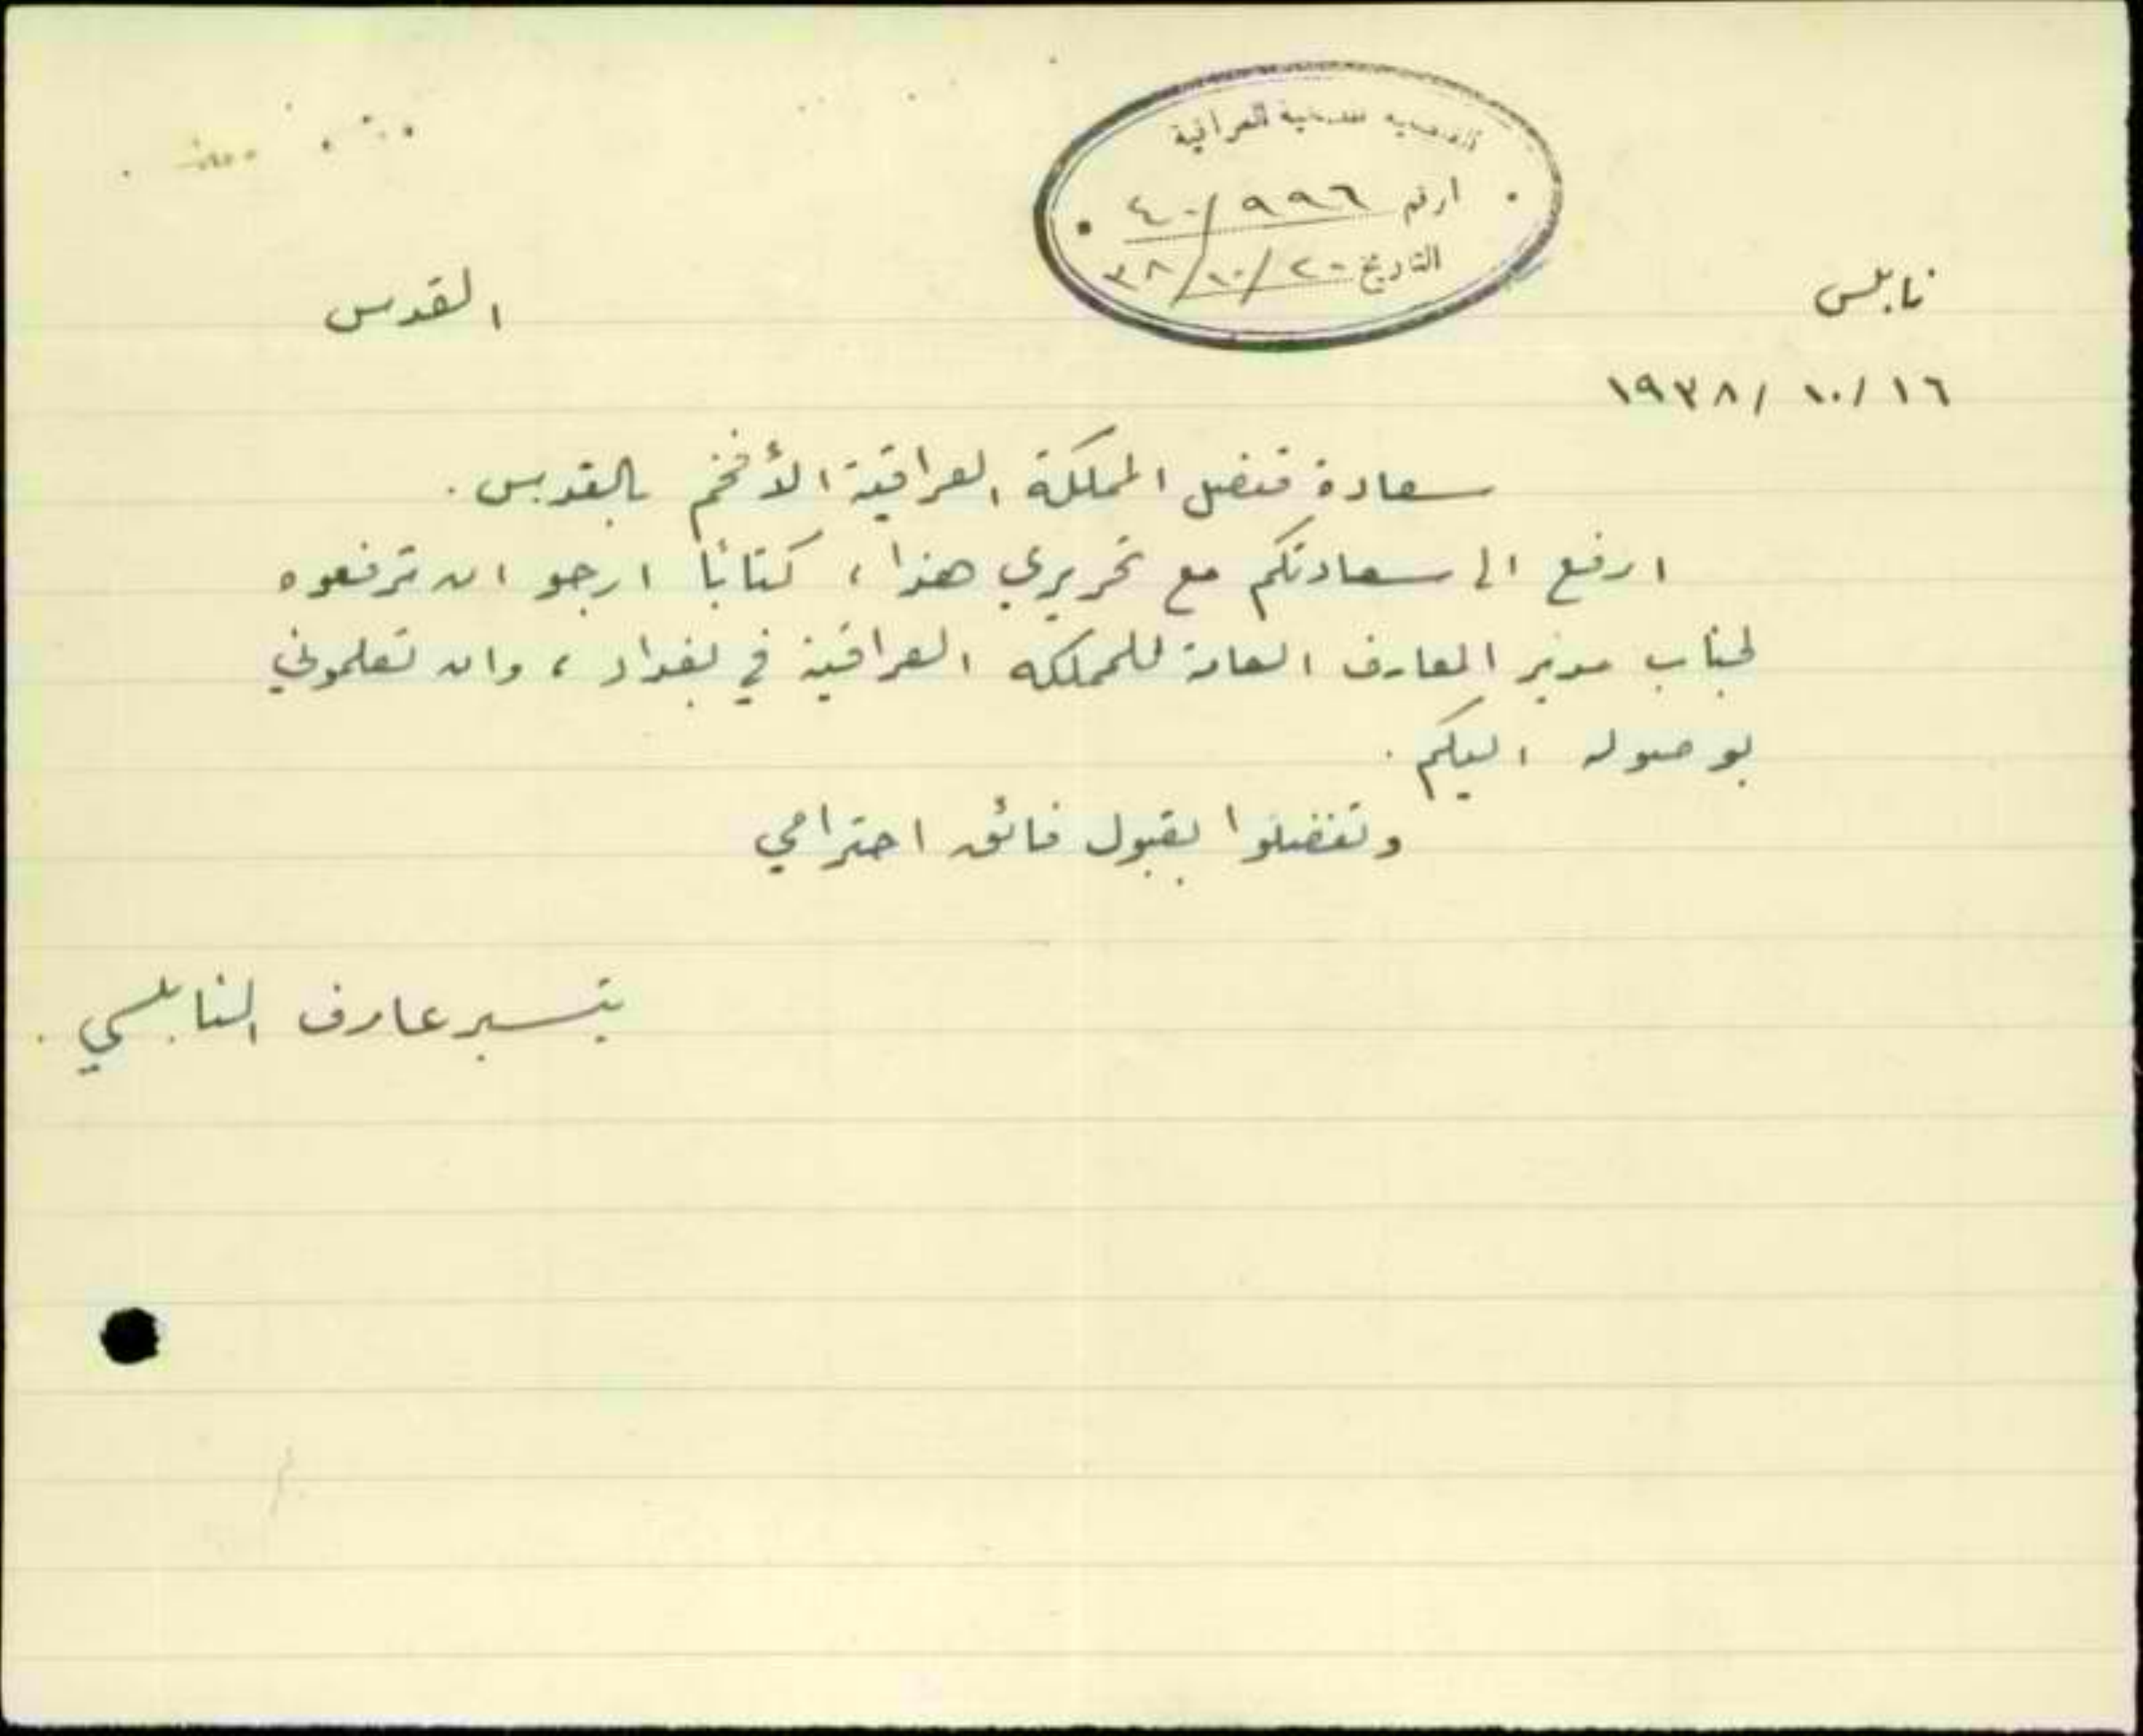 العراقية
الرقم ٩٩٦/٤٠
التاريخ ٢٠/١٠/٣٨
نابلس
القدس
١٦/١٠/١٩٣٨
سعادة قنصل المملكة العراقية الأفخم بالقدس.
ارفع الى سعادتكم مع تحريري هذا، كتاباً ارجو ان ترفعوه
لجناب مدير المعارف العامة للمملكه العراقية في بغداد، وان تعلموني
بوصوله اليكم.
وتفضلوا بقبول فائق احترامي
تيسير عارف النابلسي.